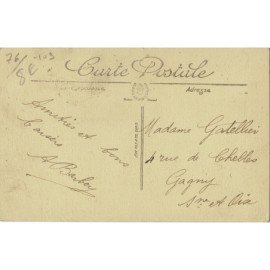 76/ 113
84
Carte Postale
Adresse
Amitiés et bons
baisers
A. Barbey
Madame Gatellier
4 rue de Chelles
Gagny
Sne et Oise